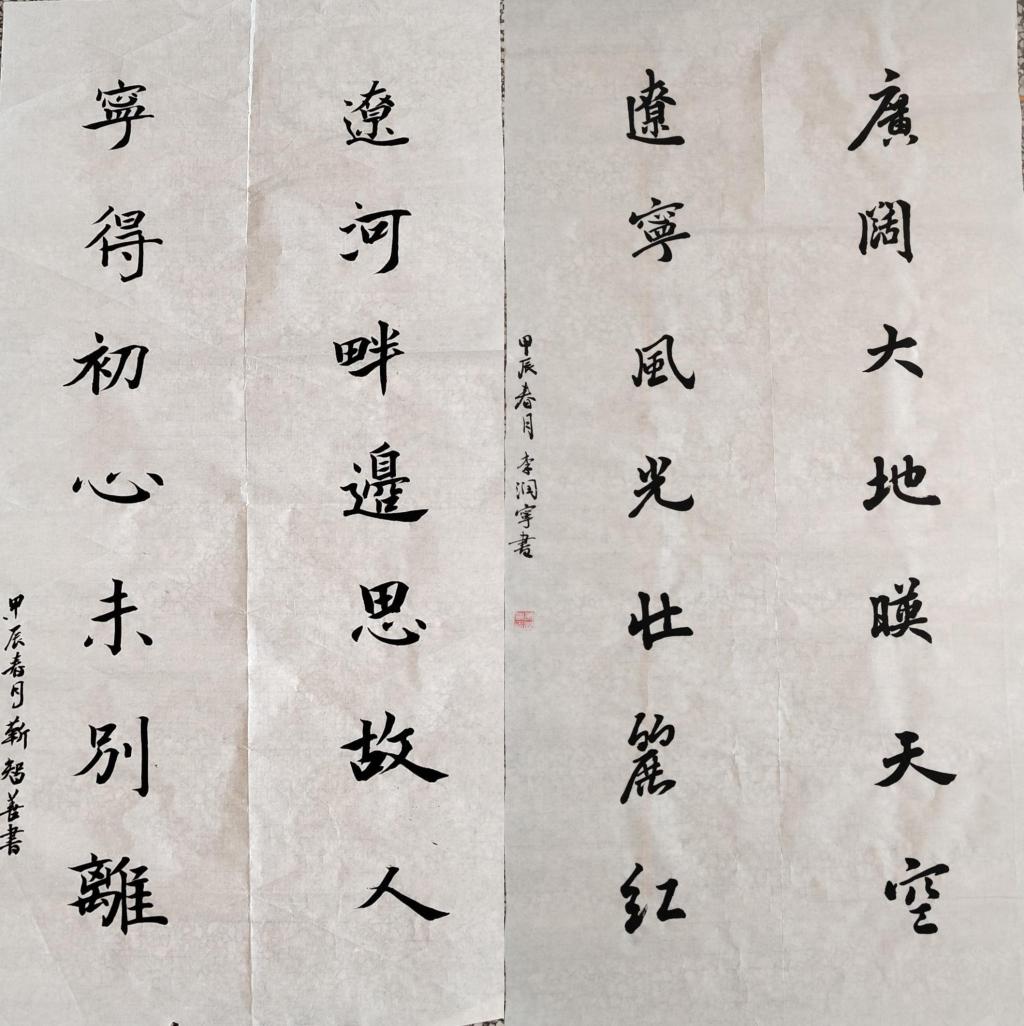 廣闊大地暎天空
遼寧風光壯麗紅
甲辰春月 李润寧書
遼河畔邊思故人
寧得初心未別離
甲辰春月 靳智善書